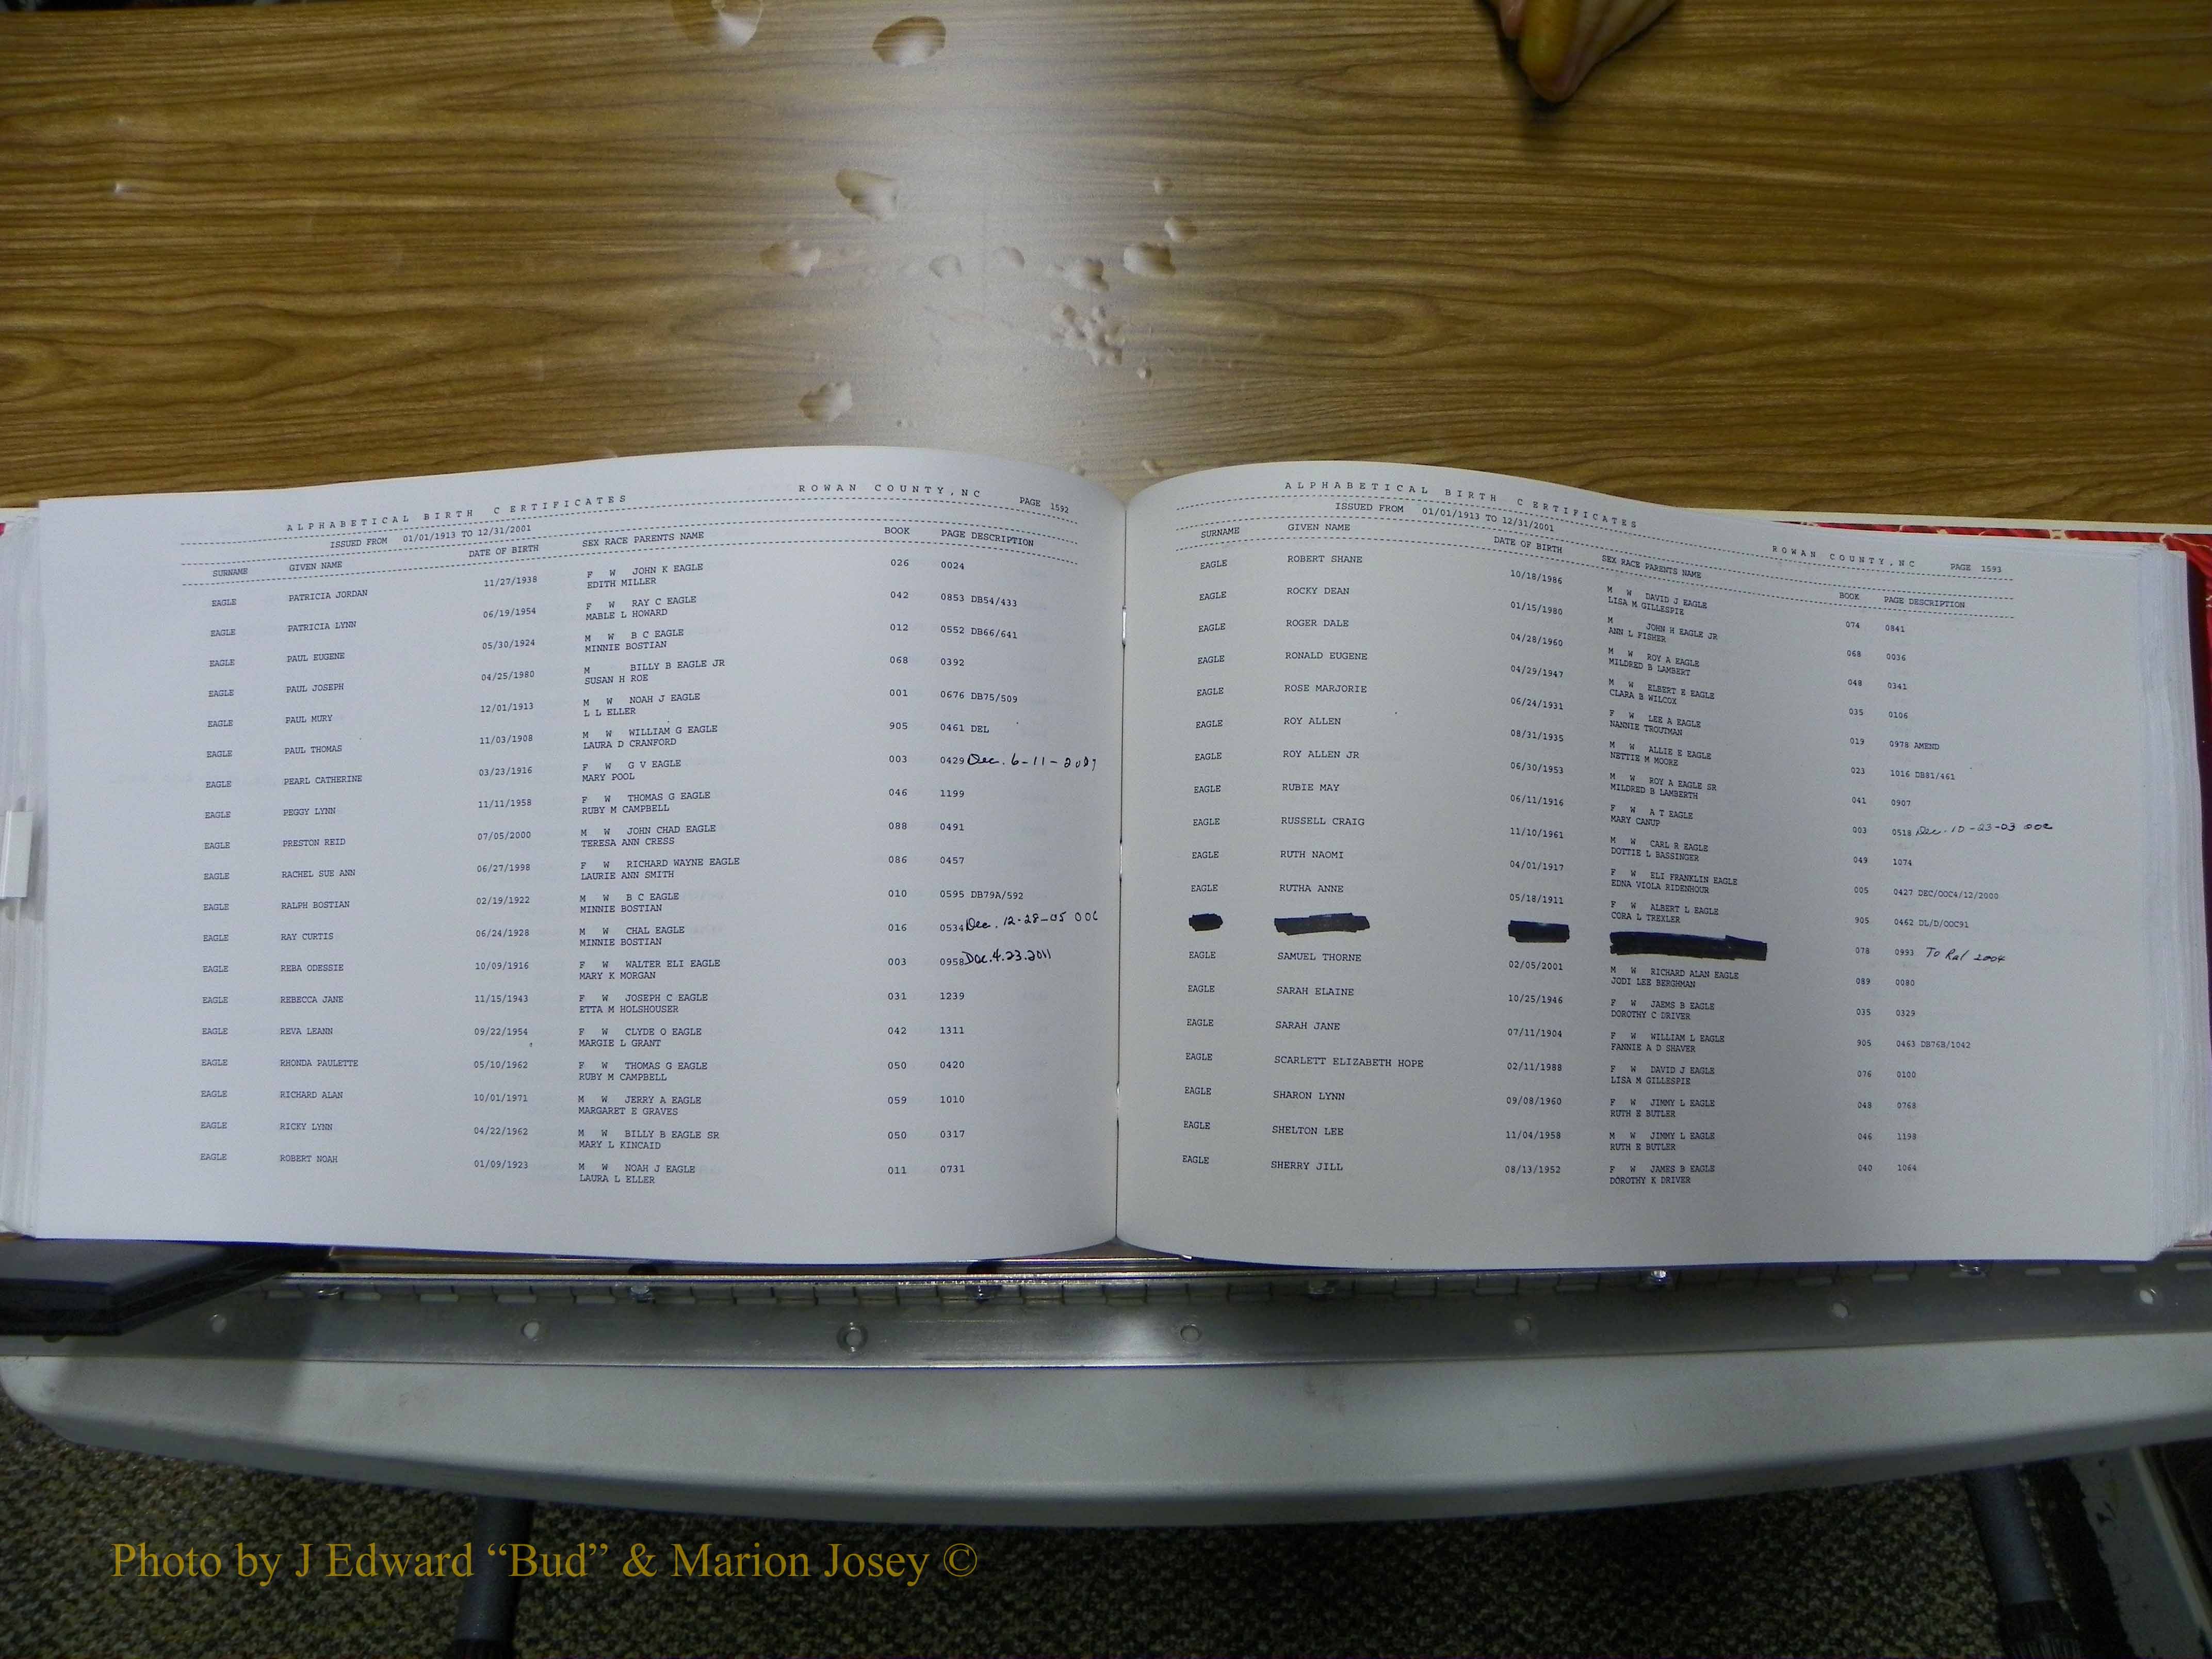 ALPHABETICAL BIRTH CERTIFICATES ROWAN COUNTY, NC PAGE 1592
ISSUED FROM 01/01/1913 TO 12/31/2001
SURNAME GIVEN NAME DATE OF BIRTH SEX RACE PARENTS NAME BOOK PAGE DESCRIPTION
EAGLE PATRICIA JORDAN 11/27/1938 F W JOHN K EAGLE 026 0024
EDITH MILLER
EAGLE PATRICIA LYNN 06/19/1954 F W RAY C EAGLE 042 0853 DB54/433
MABLE L HOWARD
EAGLE PAUL EUGENE 05/30/1924 M W B C EAGLE 012 0552 DB66/641
MINNIE BOSTIAN
EAGLE PAUL JOSEPH 04/25/1980 M BILLY B EAGLE JR 068 0392
SUSAN H ROE
EAGLE PAUL MURY 12/01/1913 M W NOAH J EAGLE 001 0676 DB75/509
L L ELLER
EAGLE PAUL THOMAS 11/03/1908 M W WILLIAM G EAGLE 905 0461 DEL
LAURA D CRANFORD
EAGLE PEARL CATHERINE 03/23/1916 F W G V EAGLE 003 0429 Dec. 6-11-2007
MARY POOL
EAGLE PEGGY LYNN 11/11/1958 F W THOMAS G EAGLE 046 1199
RUBY M CAMPBELL
EAGLE PRESTON REID 07/05/2000 M W JOHN CHAD EAGLE 088 0491
TERESA ANN CRESS
EAGLE RACHEL SUE ANN 06/27/1998 F W RICHARD WAYNE EAGLE 086 0457
LAURIE ANN SMITH
EAGLE RALPH BOSTIAN 02/19/1922 M W B C EAGLE 010 0595 DB79A/592
MINNIE BOSTIAN
EAGLE RAY CURTIS 06/24/1928 M W CHAL EAGLE 016 0534 Dec. 12-28-05 OOC
MINNIE BOSTIAN
EAGLE REBA ODESSIE 10/09/1916 F W WALTER ELI EAGLE 003 0958 Dec. 4.23.2011
MARY K MORGAN
EAGLE REBECCA JANE 11/15/1943 F W JOSEPH C EAGLE 031 1239
ETTA M HOLSHOUSER
EAGLE REVA LEANN 09/22/1954 F W CLYDE O EAGLE 042 1311
MARGIE L GRANT
EAGLE RHONDA PAULETTE 05/10/1962 F W THOMAS G EAGLE 050 0420
RUBY M CAMPBELL
EAGLE RICHARD ALAN 10/01/1971 M W JERRY A EAGLE 059 1010
MARGARET E GRAVES
EAGLE RICKY LYNN 04/22/1962 M W BILLY B EAGLE SR 050 0317
MARY L KINCAID
EAGLE ROBERT NOAH 01/09/1923 M W NOAH J EAGLE 011 0731
LAURA L ELLER
ALPHABETICAL BIRTH CERTIFICATES ROWAN COUNTY, NC PAGE 1593
ISSUED FROM 01/01/1913 TO 12/31/2001
SURNAME GIVEN NAME DATE OF BIRTH SEX RACE PARENTS NAME BOOK PAGE DESCRIPTION
EAGLE ROBERT SHANE 10/18/1986 M W DAVID J EAGLE 074 0841
LISA M GILLESPIE
EAGLE ROCKY DEAN 01/15/1980 M JOHN H EAGLE JR 068 0036
ANN L FISHER
EAGLE ROGER DALE 04/28/1960 M W ROY A EAGLE 048 0341
MILDRED B LAMBERT
EAGLE RONALD EUGENE 04/29/1947 M W ELBERT E EAGLE 035 0106
CLARA B WILCOX
EAGLE ROSE MARJORIE 06/24/1931 F W LEE A EAGLE 019 0978 AMEND
NANNIE TROUTMAN
EAGLE ROY ALLEN 08/31/1935 M W ALLIE E EAGLE 023 1016 DB81/461
NETTIE M MOORE
EAGLE ROY ALLEN JR 06/30/1953 M W ROY A EAGLE SR 041 0907
MILDRED B LAMBERTH
EAGLE RUBIE MAY 06/11/1916 F W A T EAGLE 003 0518 Dec. 10-23-03 OOC
MARY CANUP
EAGLE RUSSELL CRAIG 11/10/1961 M W CARL R EAGLE 049 1074
DOTTIE L BASSINGER
EAGLE RUTH NAOMI 04/01/1917 F W ELI FRANKLIN EAGLE 005 0427 DEC/OOC4/12/2000
EDNA VIOLA RIDENHOUR
EAGLE RUTHA ANNE 05/18/1911 F W ALBERT L EAGLE 905 0462 DL/D/OOC91
CORA L TREXLER
078 0993 To Ral 2004
EAGLE SAMUEL THORNE 02/05/2001 M W RICHARD ALAN EAGLE 089 0080
JODI LEE BERGHMAN
EAGLE SARAH ELAINE 10/25/1946 F W JAEMS B EAGLE 035 0329
DOROTHY C DRIVER
EAGLE SARAH JANE 07/11/1904 F W WILLIAM L EAGLE 905 0463 DB76B/1042
FANNIE A D SHAVER
EAGLE SCARLETT ELIZABETH HOPE 02/11/1988 F W DAVID J EAGLE 076 0100
LISA M GILLESPIE
EAGLE SHARON LYNN 09/08/1960 F W JIMMY L EAGLE 048 0768
RUTH E BUTLER
EAGLE SHELTON LEE 11/04/1958 M W JIMMY L EAGLE 046 1198
RUTH E BUTLER
EAGLE SHERRY JILL 08/13/1952 F W JAMES B EAGLE 040 1064
DOROTHY K DRIVER
Photo by J Edward “Bud” & Marion Josey ©